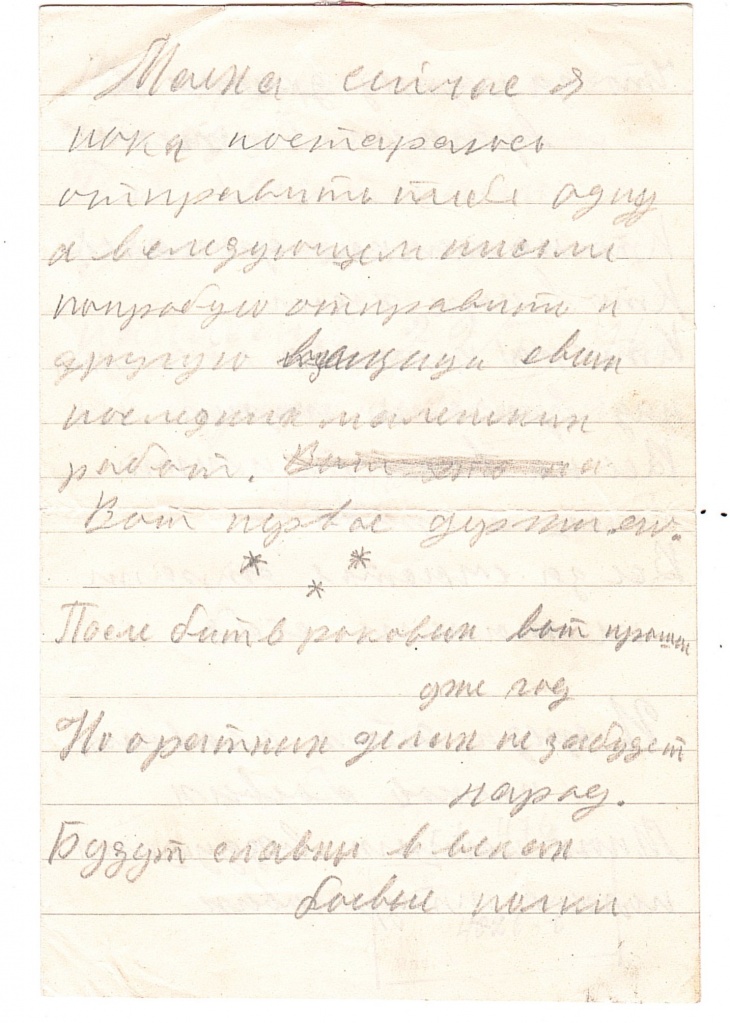 Мама сейчас я
пока постараюсь
отправить тебе одну
а в следующем письме
попробую отправить и
другую своих
последних маленьких
работ. на
Вот первое держи
* * *
После битв роковых вот прошел
уже год
Но о ратних делах не забудет
народ.
Будут славны в веках
боевые полки